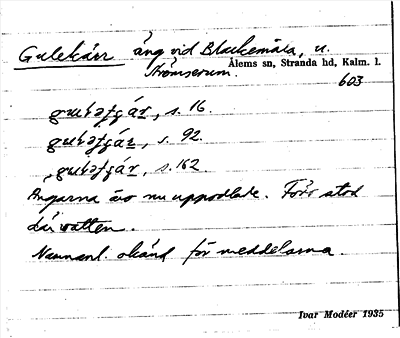 Gulekärr äng vid Blackemåla, u.
Strömserum. Ålems sn, Stranda hd, Kalm. l.
603
s. 16.
s. 92.
s. 162
Ängarna äro nu uppodlade. Förr stod
där vatten.
Namnanl. okänd för meddelarna.
Ivar Modéer 1935